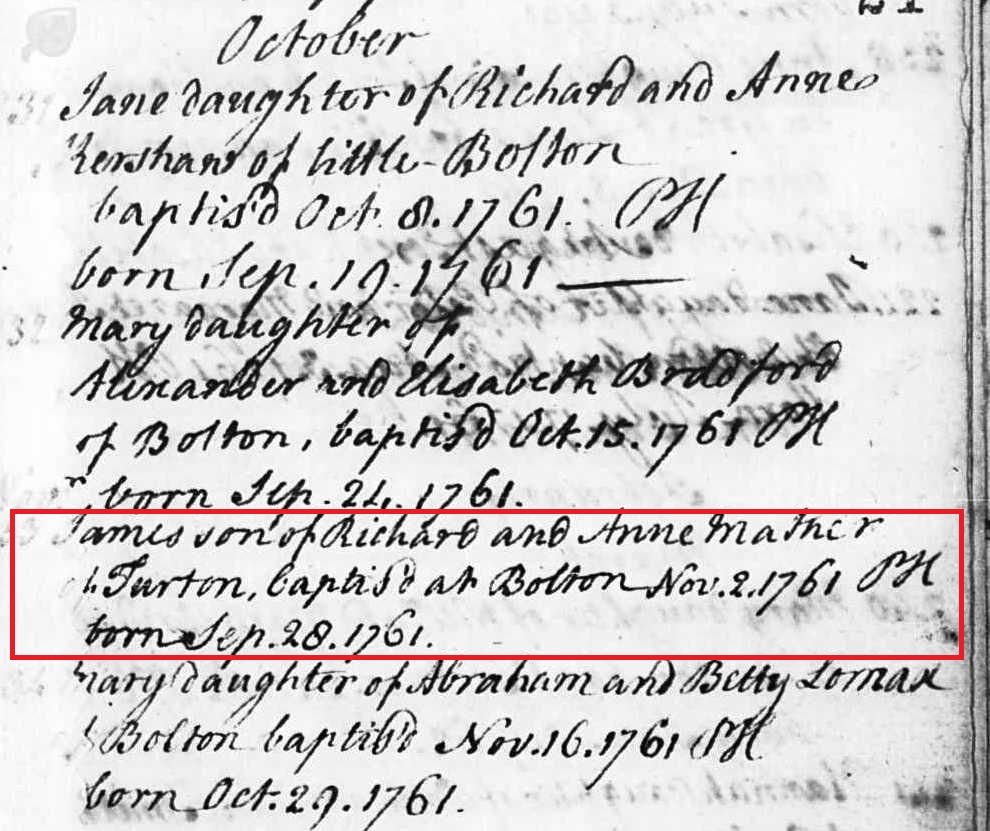 October
Jane daughter of Richard and Anne
Kershaw of little-Bolton
baptis'd Oct. 8. 1761. PH
born Sep. 19. 1761
32 Mary daughter of
Alexander and Elisabeth Bradford
of Bolton, baptis'd Oct. 15. 1761 PH
born Sep. 24. 1761.
James son of Richard and Anne Mather
Turton, baptis'd at Bolton Nov. 2. 1761 PH
born Sep. 28. 1761.
Mary daughter of Abraham and Betty Lomax
Bolton baptis'd Nov. 16. 1761 PH
born Oct. 29. 1761.